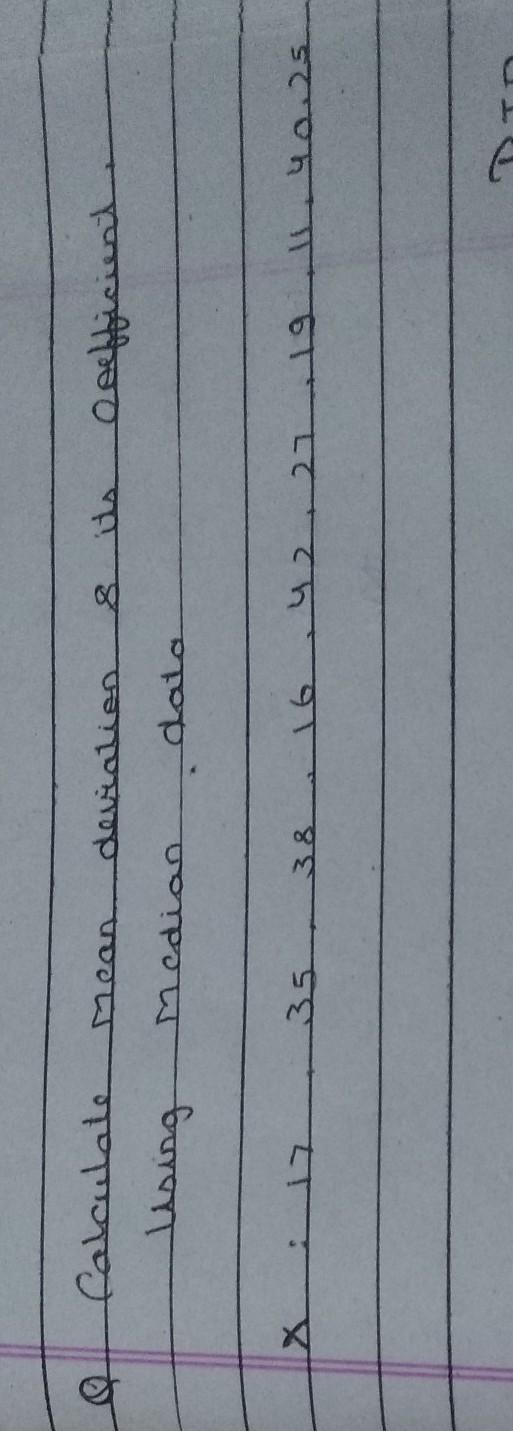 Q Calculate mean deviation & its Coefficient.
Using median data
X : 17 , 35 , 38 , 16 , 42 , 27 , 19 , 11 , 40, 25